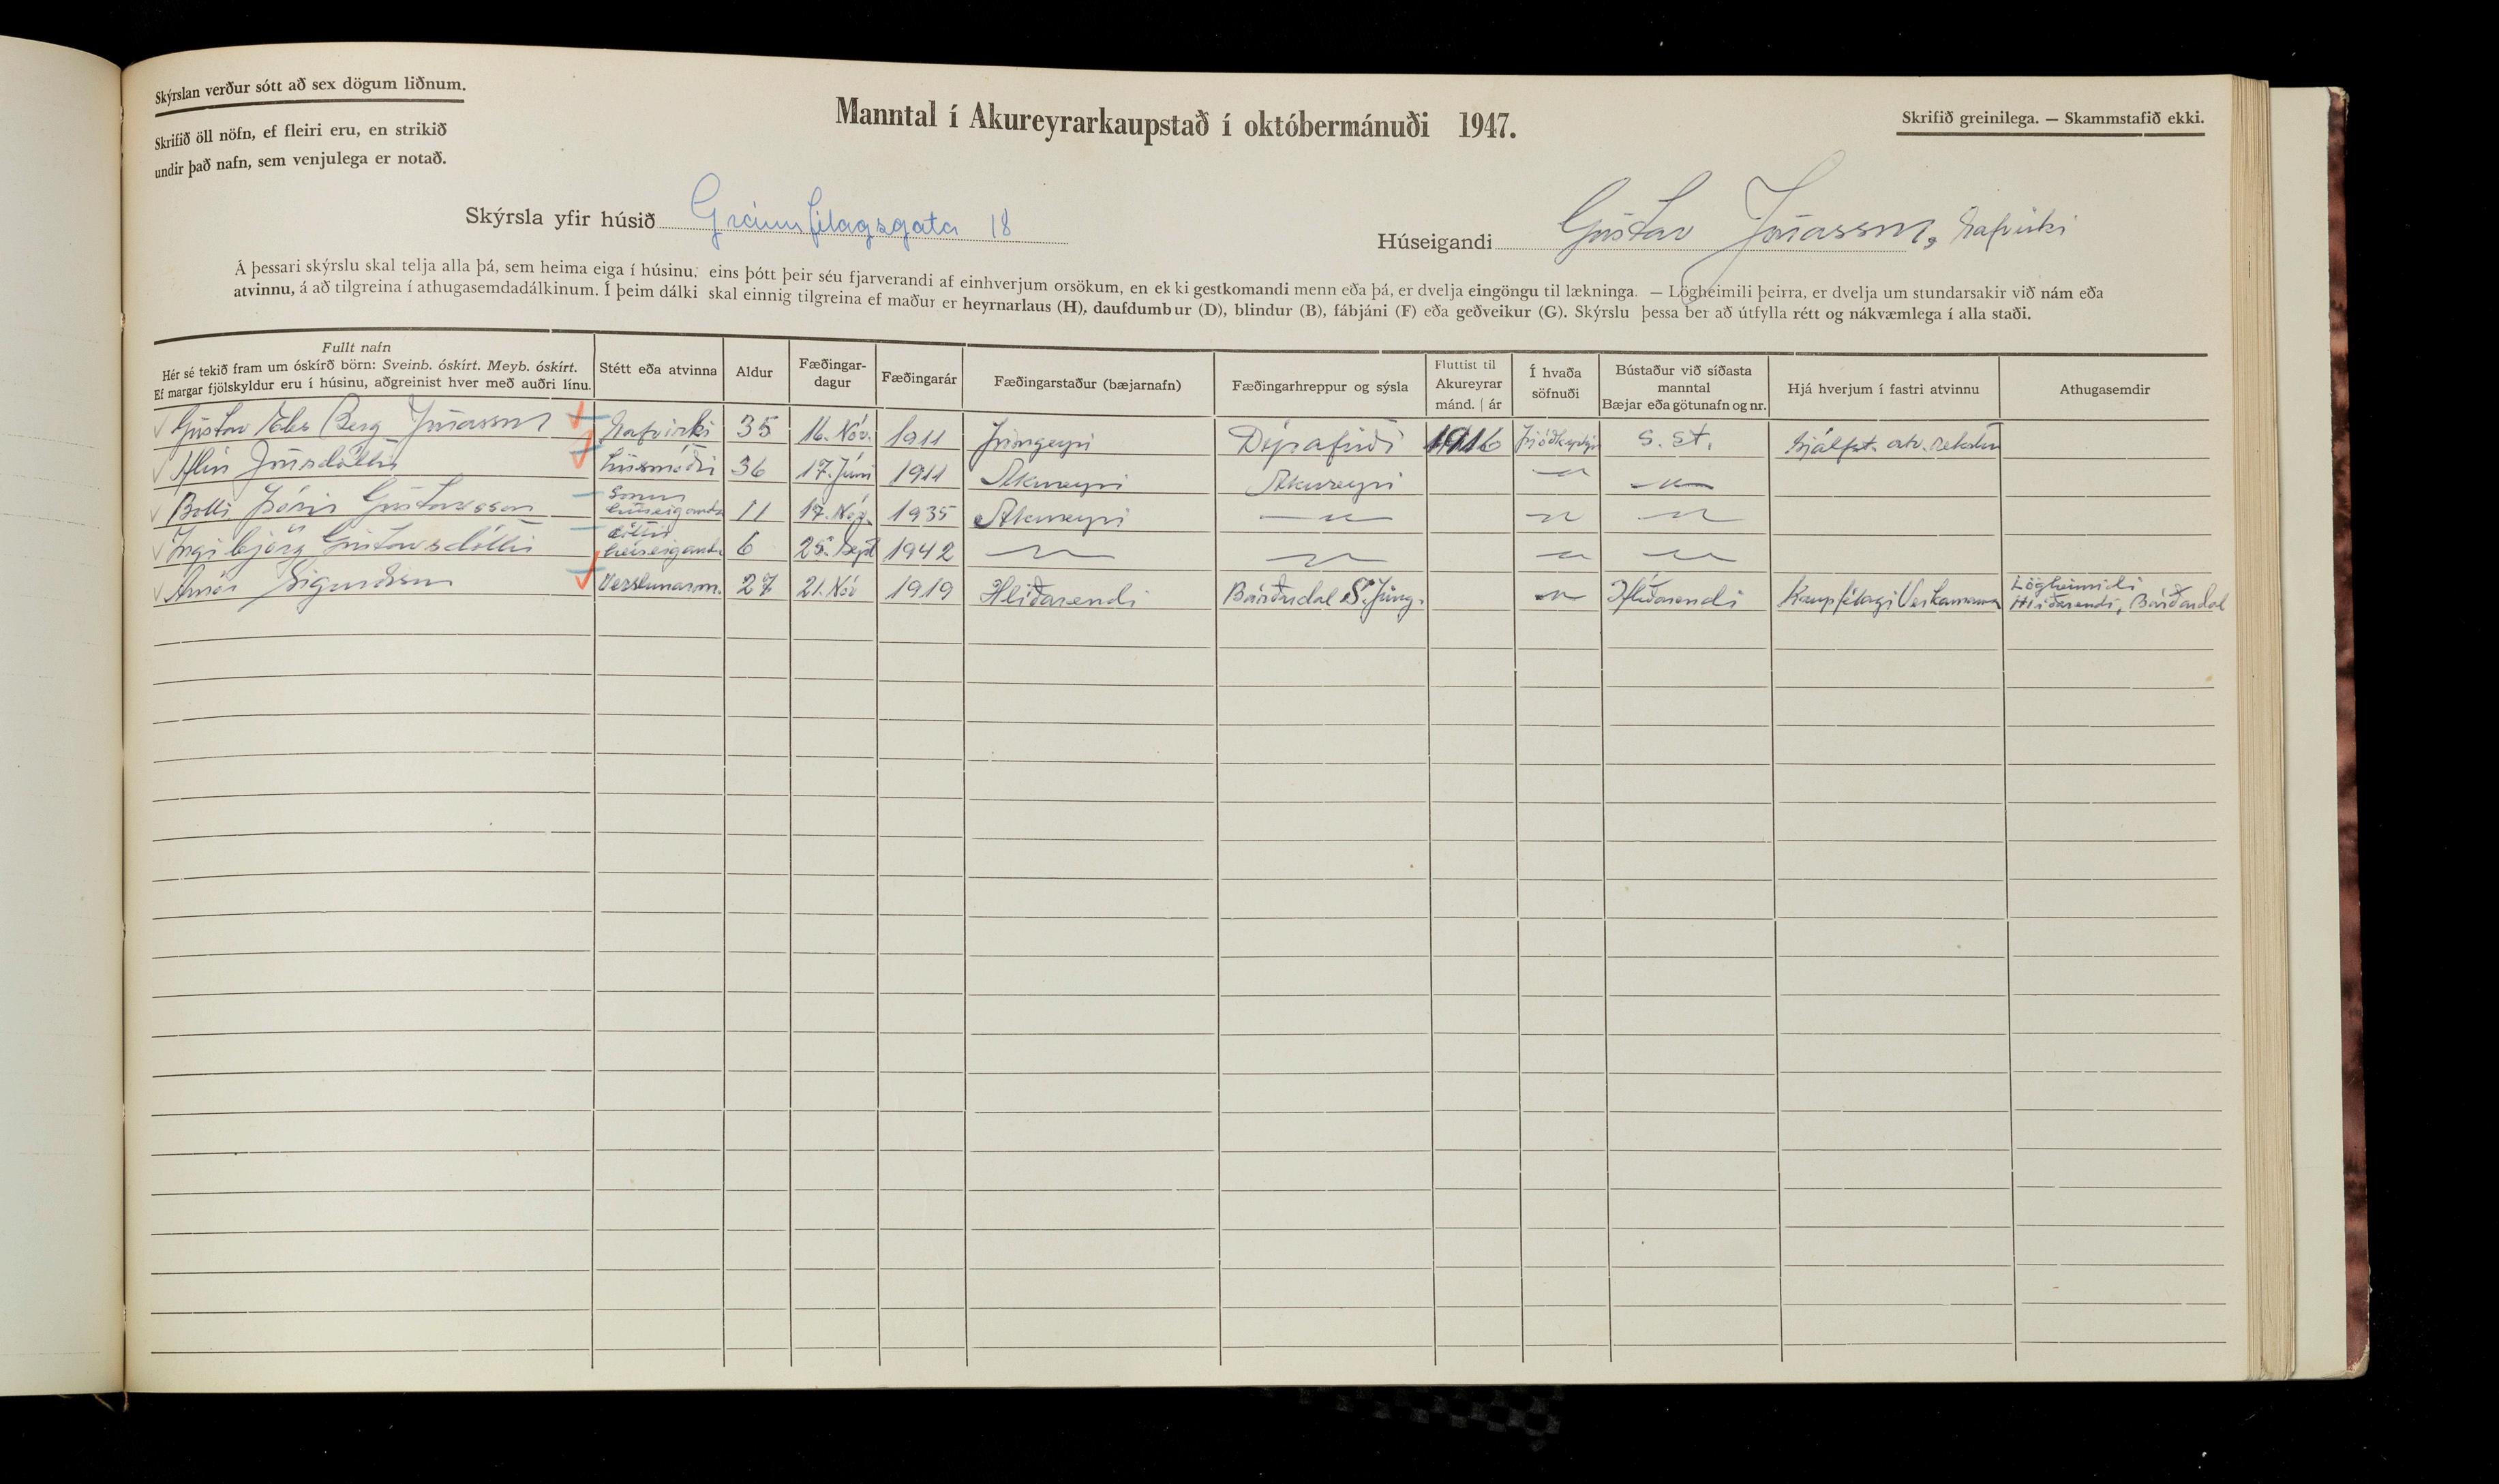 Skýrslan verður sótt að sex dögum liðnum.
Skrifið öll nöfn, ef fleiri eru, en strikið
undir það nafn, sem venjulega er notað.
Manntal í Akureyrarkaupstað í októbermánuði 1947.
Skrifið greinilega. — Skammstafið ekki.
Skýrsla yfir húsið Gránufélagsgata 18
Húseigandi Gústav Jónasson, rafvirki
Á þessari skýrslu skal telja alla þá, sem heima eiga í húsinu, eins þótt þeir séu fjarverandi af einhverjum orsökum, en ekki gestkomandi menn eða þá, er dvelja eingöngu til lækninga. — Lögheimili þeirra, er dvelja um stundarsakir við nám eða
atvinnu, á að tilgreina í athugasemdadálkinum. Í þeim dálki skal einnig tilgreina ef maður er heyrnarlaus (H), daufdumbur (D), blindur (B), fábjáni (F) eða geðveikur (G). Skýrslu þessa ber að útfylla rétt og nákvæmlega í alla staði.
Fullt nafn
Hér sé tekið fram um óskírð börn: Sveinb. óskírt. Meyb. óskírt.
Ef margar fjölskyldur eru í húsinu, aðgreinist hver með auðri línu.
Stétt eða atvinna
Aldur
Fæðingar-
dagur
Fæðingarár
Fæðingarstaður (bæjarnafn)
Fæðingarhreppur og sýsla
Fluttist til
Akureyrar
mánd. | ár
Í hvaða
söfnuði
Bústaður við síðasta
manntal
Bæjar eða götunafn og nr.
Hjá hverjum í fastri atvinnu
Athugasemdir
Gústav Berg Jónasson Rafvirki 35 16. Nóv. 1911 Þingeyri Dýrafirði 1916 Þjóðkirkju S. St. Sjálfst. atv.rekstur
Hlín Jónsdóttir húsmóðir 36 17. Júní 1911 Akureyri Akureyri —"— —"—
Bolli Þórir Gústavsson Sonur húseiganda 11 17. Nóv. 1935 Akureyri —"— —"— —"—
Ingibjörg Gústavsdóttir dóttir húseiganda 6 25. Sept 1942 —"— —"— —"— —"—
Arnór Sigurðsson Verslunarm. 27 21. Nóv 1919 Hlíðarendi Bárðardal S. Þing. —"— Hlíðarendi Kaupfélagi Verkamanna Lögheimili
Hlíðarendi, Bárðardal